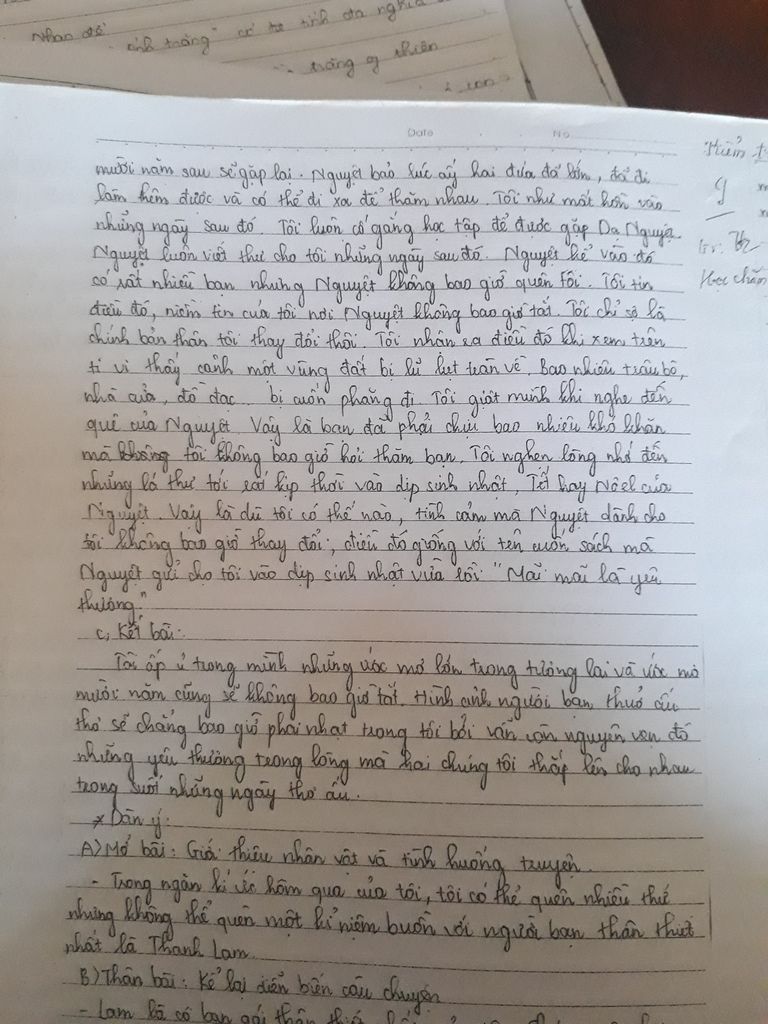 Nhan đề
ánh trăng" có
tính đa nghĩa
trăng
thiên
Date
No
mười năm sau sẽ gặp lại. Nguyệt bảo lúc ấy hai đứa đã lớn, đã đi
làm kiếm được và có thể đi xa để thăm nhau. Tôi như mất hồn vào
những ngày sau đó. Tôi luôn cố gắng học tập để được gặp Dạ Nguyệt.
Nguyệt luôn viết thư cho tôi những ngày sau đó. Nguyệt kể vào đó
có rất nhiều bạn nhưng Nguyệt không bao giờ quên tôi. Tôi tin
điều đó, niềm tin của tôi nơi Nguyệt không bao giờ tắt. Tôi chỉ sợ là
chính bản thân tôi thay đổi thôi. Tôi nhận ra điều đó khi xem trên
ti vi thấy cảnh một vùng đất bị lũ lụt tràn về. Bao nhiêu trâu bò,
nhà cửa, đồ đạc bị cuốn phăng đi. Tôi giật mình khi nghe đến
quê của Nguyệt. Vậy là bạn đã phải chịu bao nhiêu khó khăn
mà tôi không bao giờ hỏi thăm bạn. Tôi nghẹn lòng nhớ đến
những lá thư tới rất kịp thời vào dịp sinh nhật, Tết hay Nôel của
Nguyệt. Vậy là dù tôi có thế nào, tình cảm mà Nguyệt dành cho
tôi không bao giờ thay đổi, điều đó giống với tên cuốn sách mà
Nguyệt gửi cho tôi vào dịp sinh nhật vừa rồi "Mãi mãi là yêu
thương."
c, Kết bài:
Tôi ấp ủ trong mình những ước mơ lớn trong tương lai và ước mơ
mười năm cũng sẽ không bao giờ tắt. Hình ảnh người bạn thuở ấu
thơ sẽ chẳng bao giờ phai nhạt trong tôi bởi vẫn còn nguyên vẹn đó
những yêu thương trong lòng mà hai chúng tôi thắp lên cho nhau
trong suốt những ngày thơ ấu.
* Dàn ý:
A) Mở bài: Giới thiệu nhân vật và tình huống truyện.
- Trong ngăn kí ức hôm qua của tôi, tôi có thể quên nhiều thứ
nhưng không thể quên một kỉ niệm buồn với người bạn thân thiết
nhất là Thanh Lam.
B) Thân bài: Kể lại diễn biến câu chuyện
- Lam là cô bạn gái thân